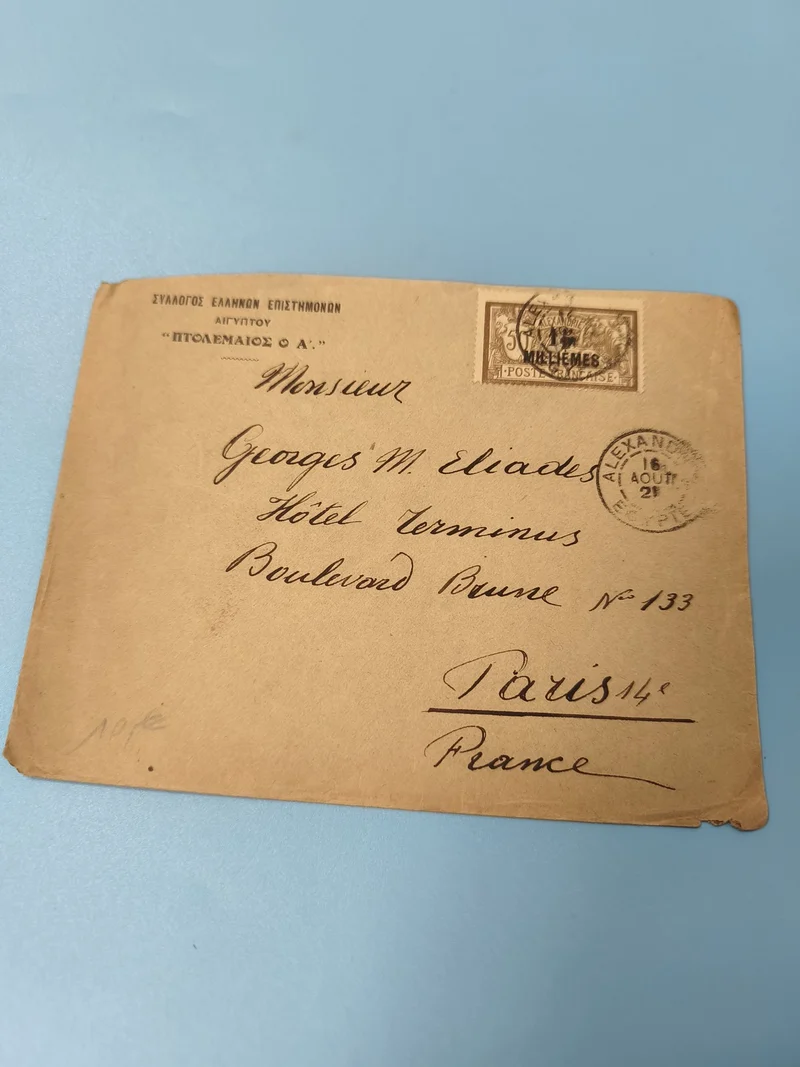 ΣΥΛΛΟΓΟΣ ΕΛΛΗΝΩΝ ΕΠΙΣΤΗΜΟΝΩΝ
ΑΙΓΥΠΤΟΥ
"ΠΤΟΛΕΜΑΙΟΣ Ο Α'."
MILLIÈMES
POSTE FRANÇAISE
Monsieur
Georges M. Eliades
Hôtel Terminus
Boulevard Brune No 133
Paris 14e
France
ALEXAND
16
AOUT
21
EGYPTE